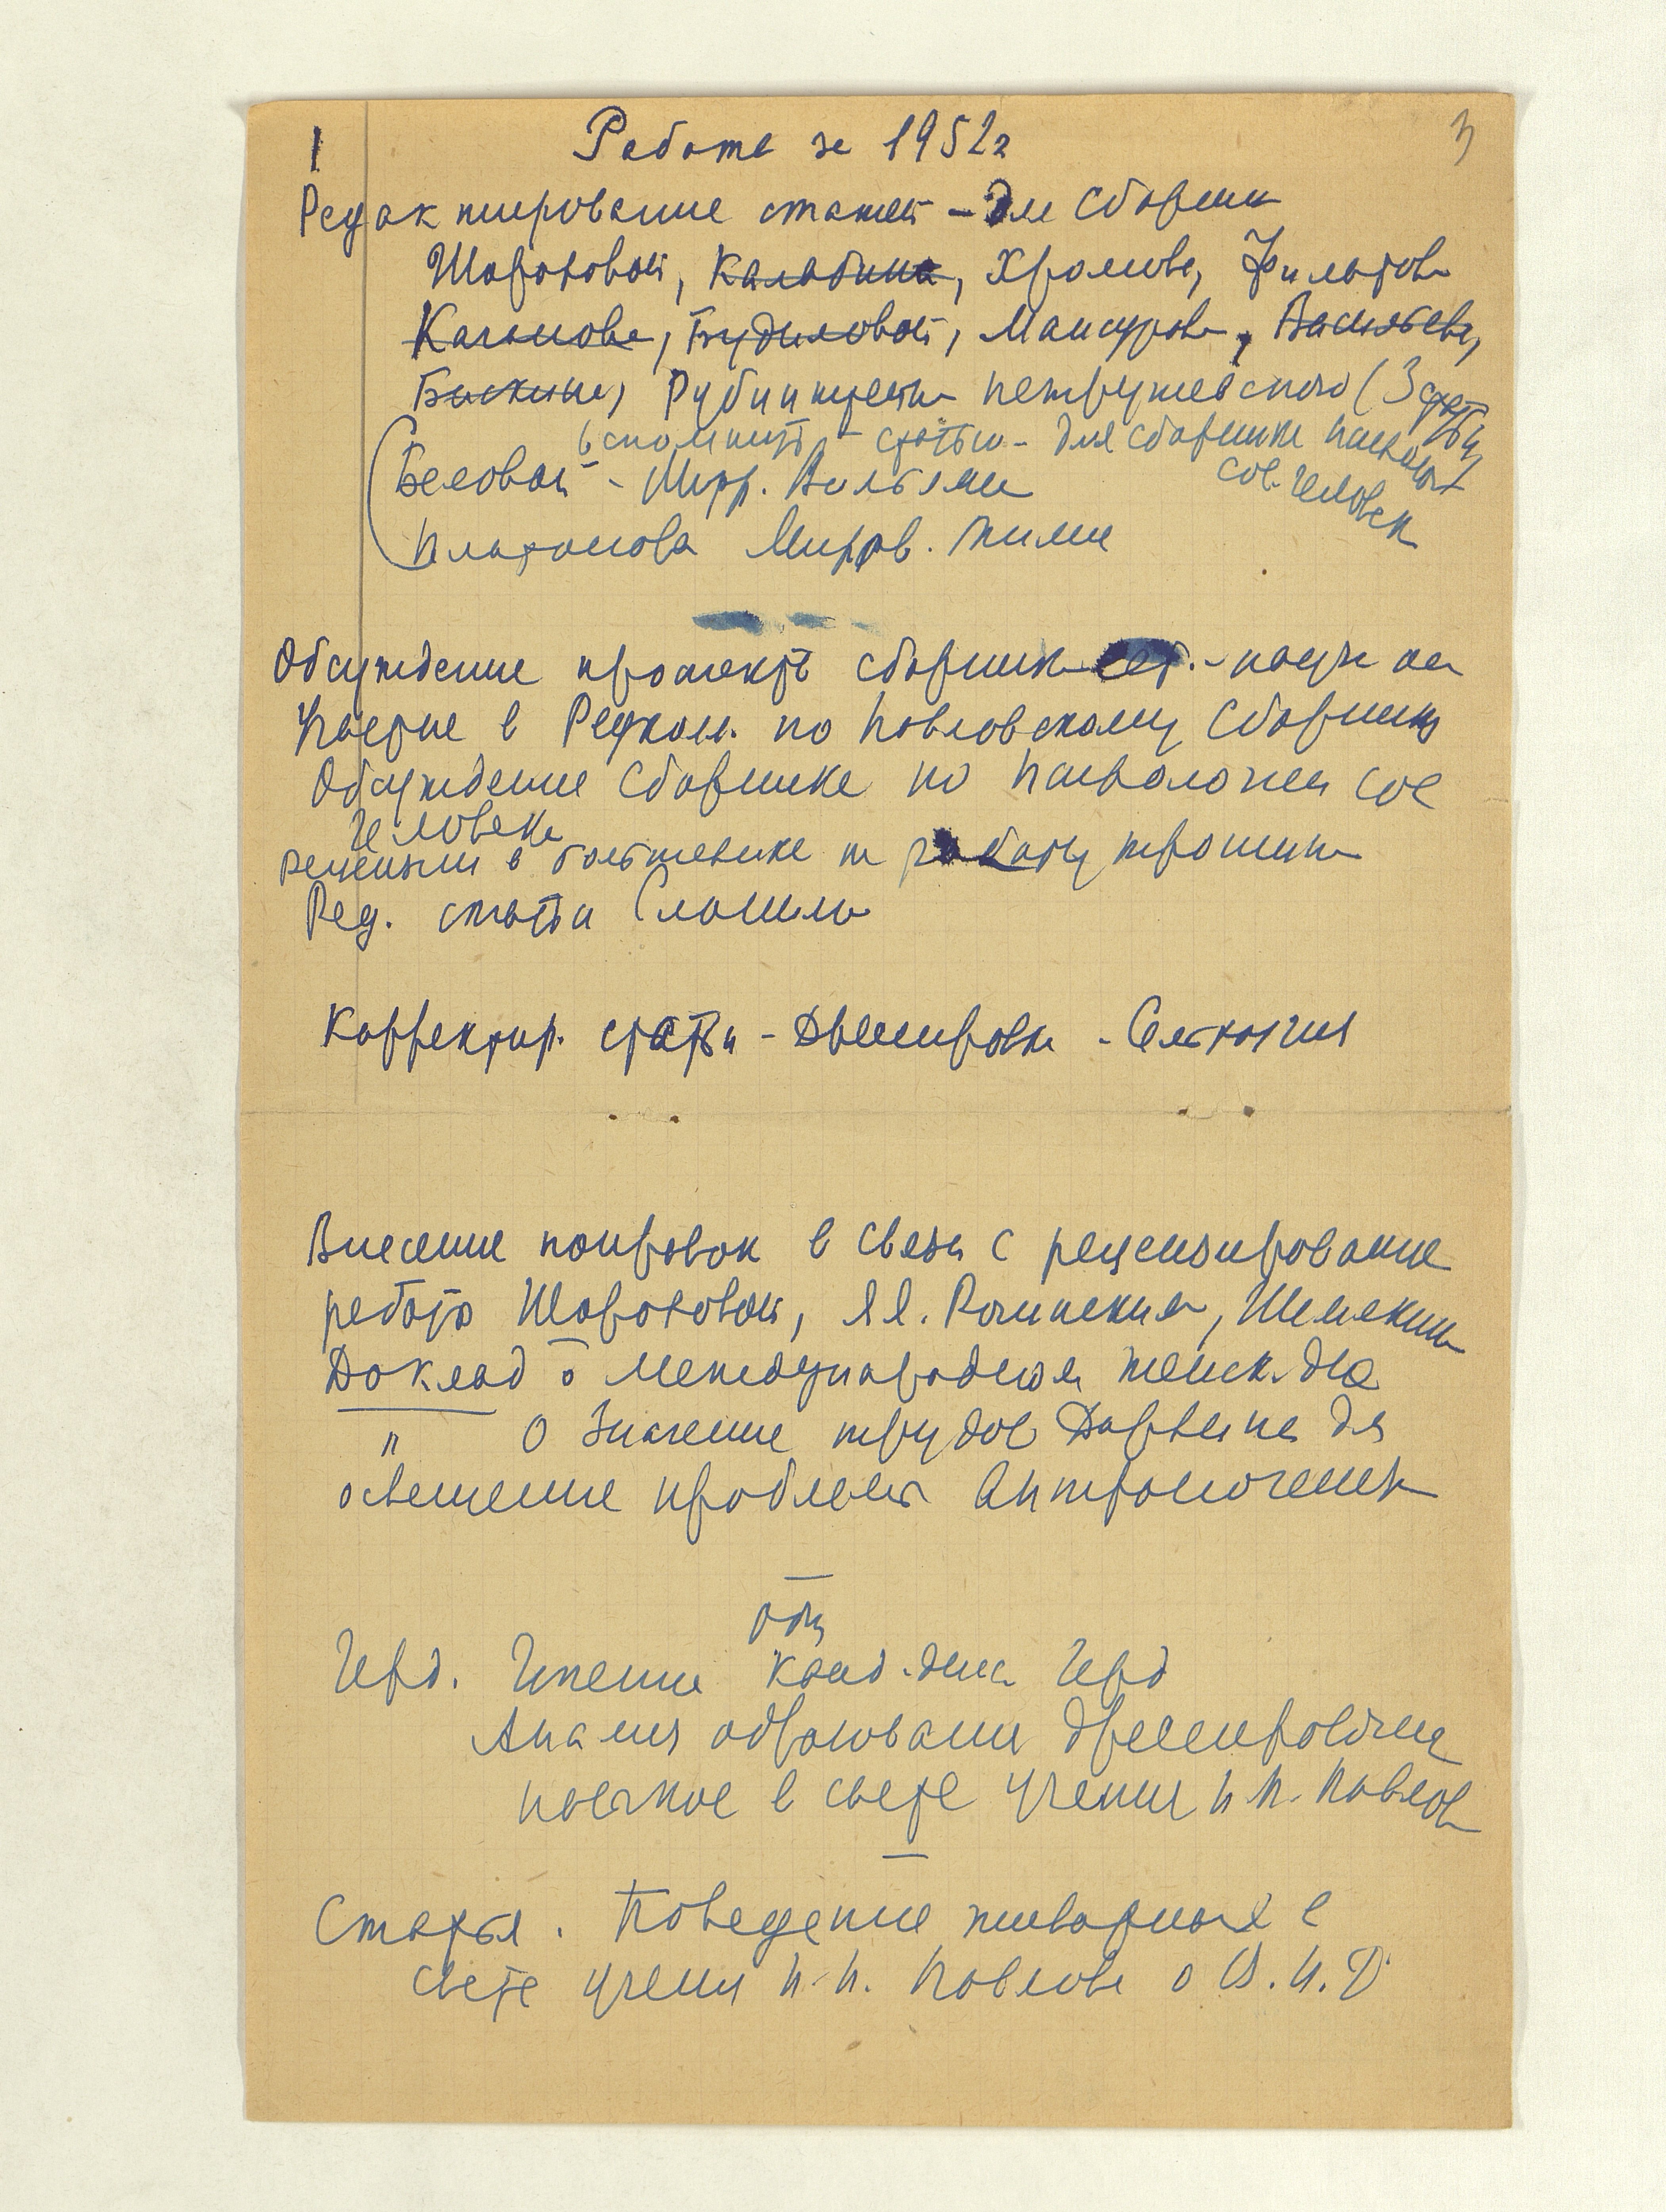 1 Работа за 1952г 3
Редактирование статей - для Сборник
Шороховой, Калабина, Хромова, Филатов
Каганова, Будиловой, Мансуров, Васильева,
Бискина, Рубинштейн Петрушевского (3 статьи
вспомнить - статью - для сборника психол
сов. человек
Беловой - Мирр. Вильяме
Платонова Миров.
Обсуждение проект сборник - наук
Участие в Редкол. по Павловскому Сборнику
Обсуждение Сборнике по Психологии сов
человека
рецензии в большевике на работу трошин
Ред. статьи
Корректир. статьи - Дрессировка -
Внесение поправок в связи с рецензирование
работ Шороховой, Я.Я. Рогинский, Шемякин
Доклад о Международном женск. дне
" О Значение трудов Дарвина для
освещение проблем Антропогенез
Герд. Чтение канд. дис. Герд
Анализ образования дрессировочных
навыков в свете учения И П. Павлов
Статья. Поведение животных в
свете учения И. П. Павлова о В.Н.Д